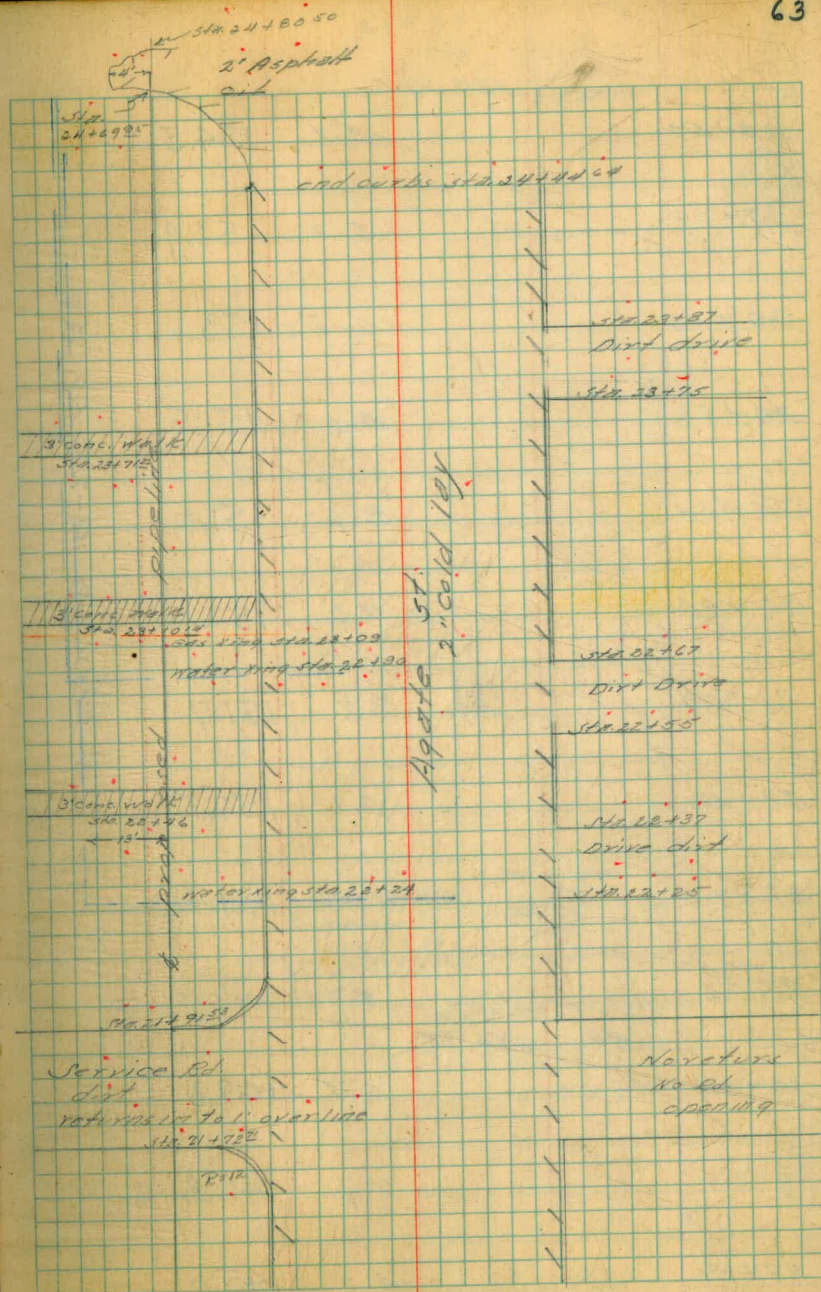 63
Sta. 24+80 50
4'
2" Asphalt
oil
Sta.
24+69 95
end curbs sta. 24+44 64
Sta. 23+87
Dirt drive
Sta. 23+75
3' conc. walk
Sta. 23+71
pipeline
Agate St.
2" cold lay
3' conc. walk
Sta. 23+10
Gas xing sta. 23+09
Water xing sta. 22+90
Sta. 22+67
Dirt Drive
Sta. 22+55
proposed
3' conc. walk
Sta. 22+46
13'
Sta. 22+37
Drive dirt
water xing sta. 22+24
Sta. 22+25
Sta. 21+91 53
Service Rd.
dirt
returns in to 1' over line
No returs
No Rd
opening
Sta. 21+72
R=12